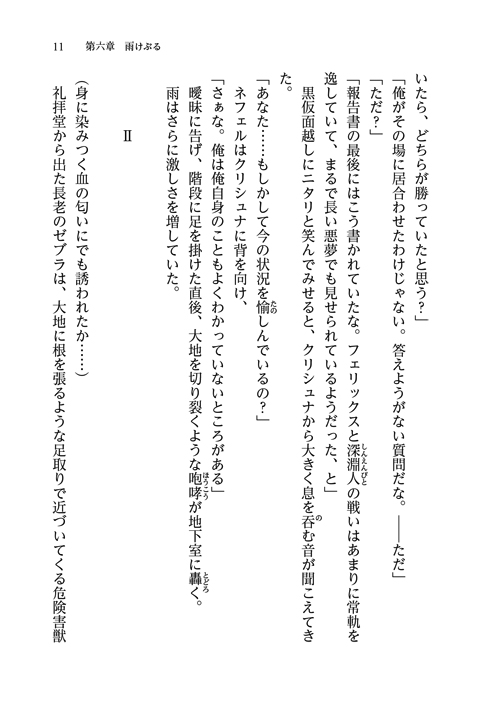 11　第六章　雨けぶる
いたら、どちらが勝っていたと思う？」
「俺がその場に居合わせたわけじゃない。答えようがない質問だな。――ただ」
「ただ？」
「報告書の最後にはこう書かれていたな。フェリックスと深淵人の戦いはあまりに常軌を
逸していて、まるで長い悪夢でも見せられているようだった、と」
黒仮面越しにニタリと笑んでみせると、クリシュナから大きく息を呑む音が聞こえてき
た。
「あなた……もしかして今の状況を愉しんでいるの？」
ネフェルはクリシュナに背を向け、
「さぁな。俺は俺自身のこともよくわかっていないところがある」
曖昧に告げ、階段に足を掛けた直後、大地を切り裂くような咆哮が地下室に轟く。
雨はさらに激しさを増していた。
Ⅱ
（身に染みつく血の匂いにでも誘われたか……）
礼拝堂から出た長老のゼブラは、大地に根を張るような足取りで近づいてくる危険害獣